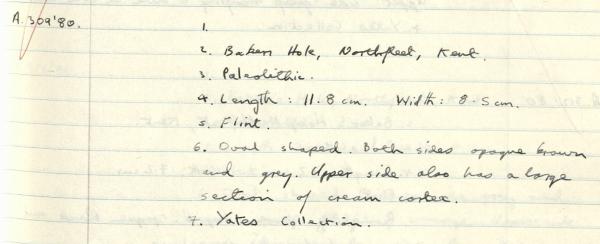 A.309'80.
1.
2. Bakers Hole, Northfleet, Kent.
3. Paleolithic.
4. Length: 11.8 cm. Width: 8.5 cm.
5. Flint.
6. Oval shaped. Both sides opaque brown
and grey. Upper side also has a large
section of cream cortex.
7. Yates Collection.